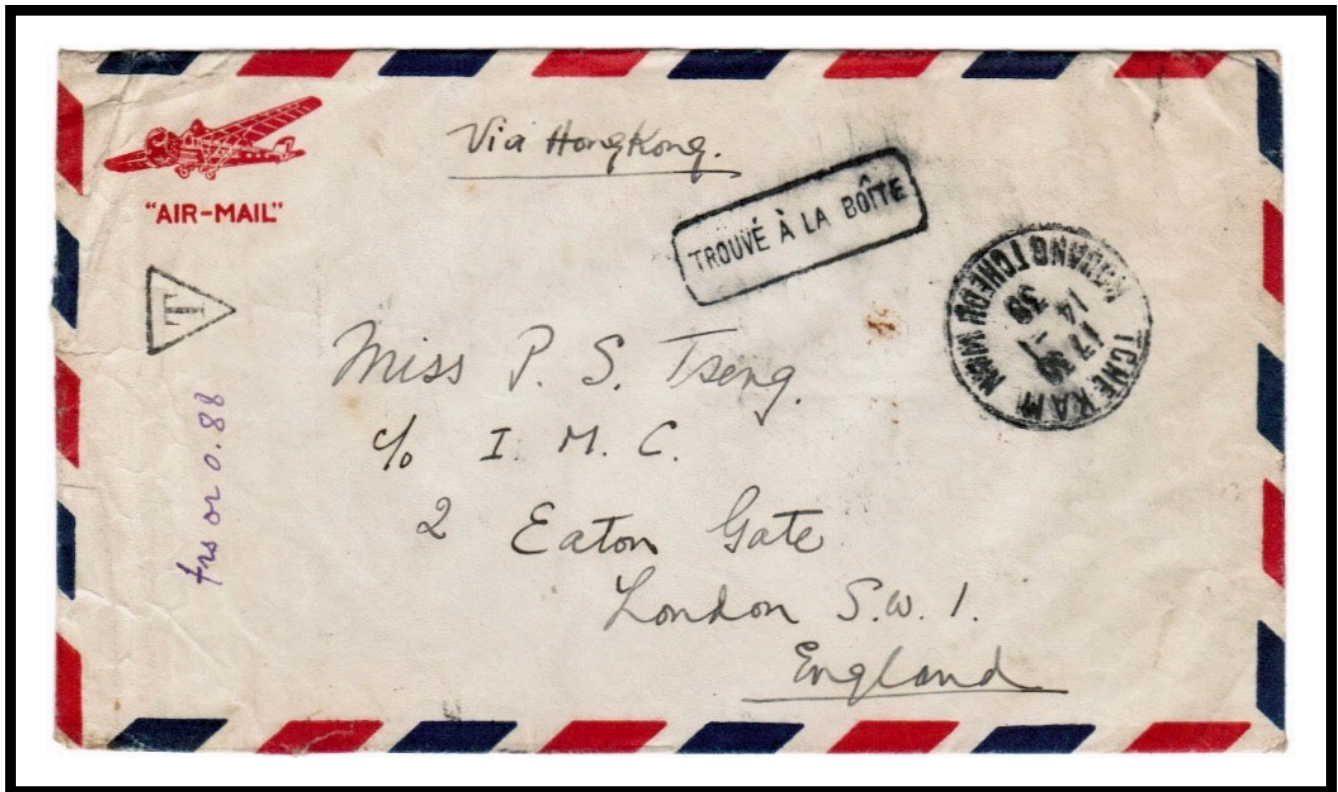 Via HongKong.
"AIR-MAIL"
TROUVÉ À LA BOÎTE
T
TCHEKAM
KOUANGTCHEOU WAN
17-1
14 30
39
frs or 0.88
Miss P. S. Tseng.
c/o I. M. C.
2 Eaton Gate
London S.W. 1.
England